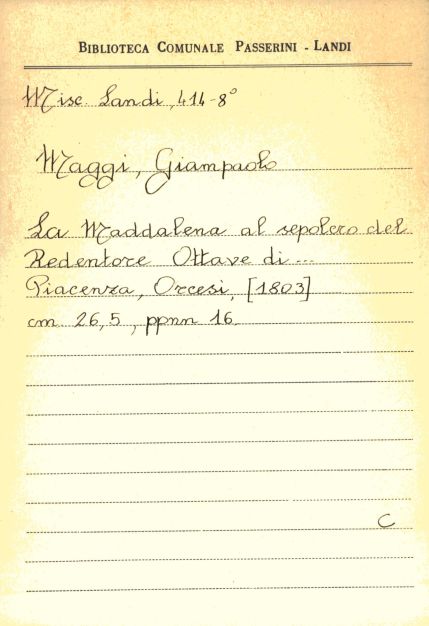 BIBLIOTECA COMUNALE PASSERINI - LANDI
Misc. Landi, 414-8°
Maggi, Giampaolo
La Maddalena al sepolcro del
Redentore Ottave di ...
Piacenza, Orcesi, [1803]
cm 26,5, ppnn 16.
C